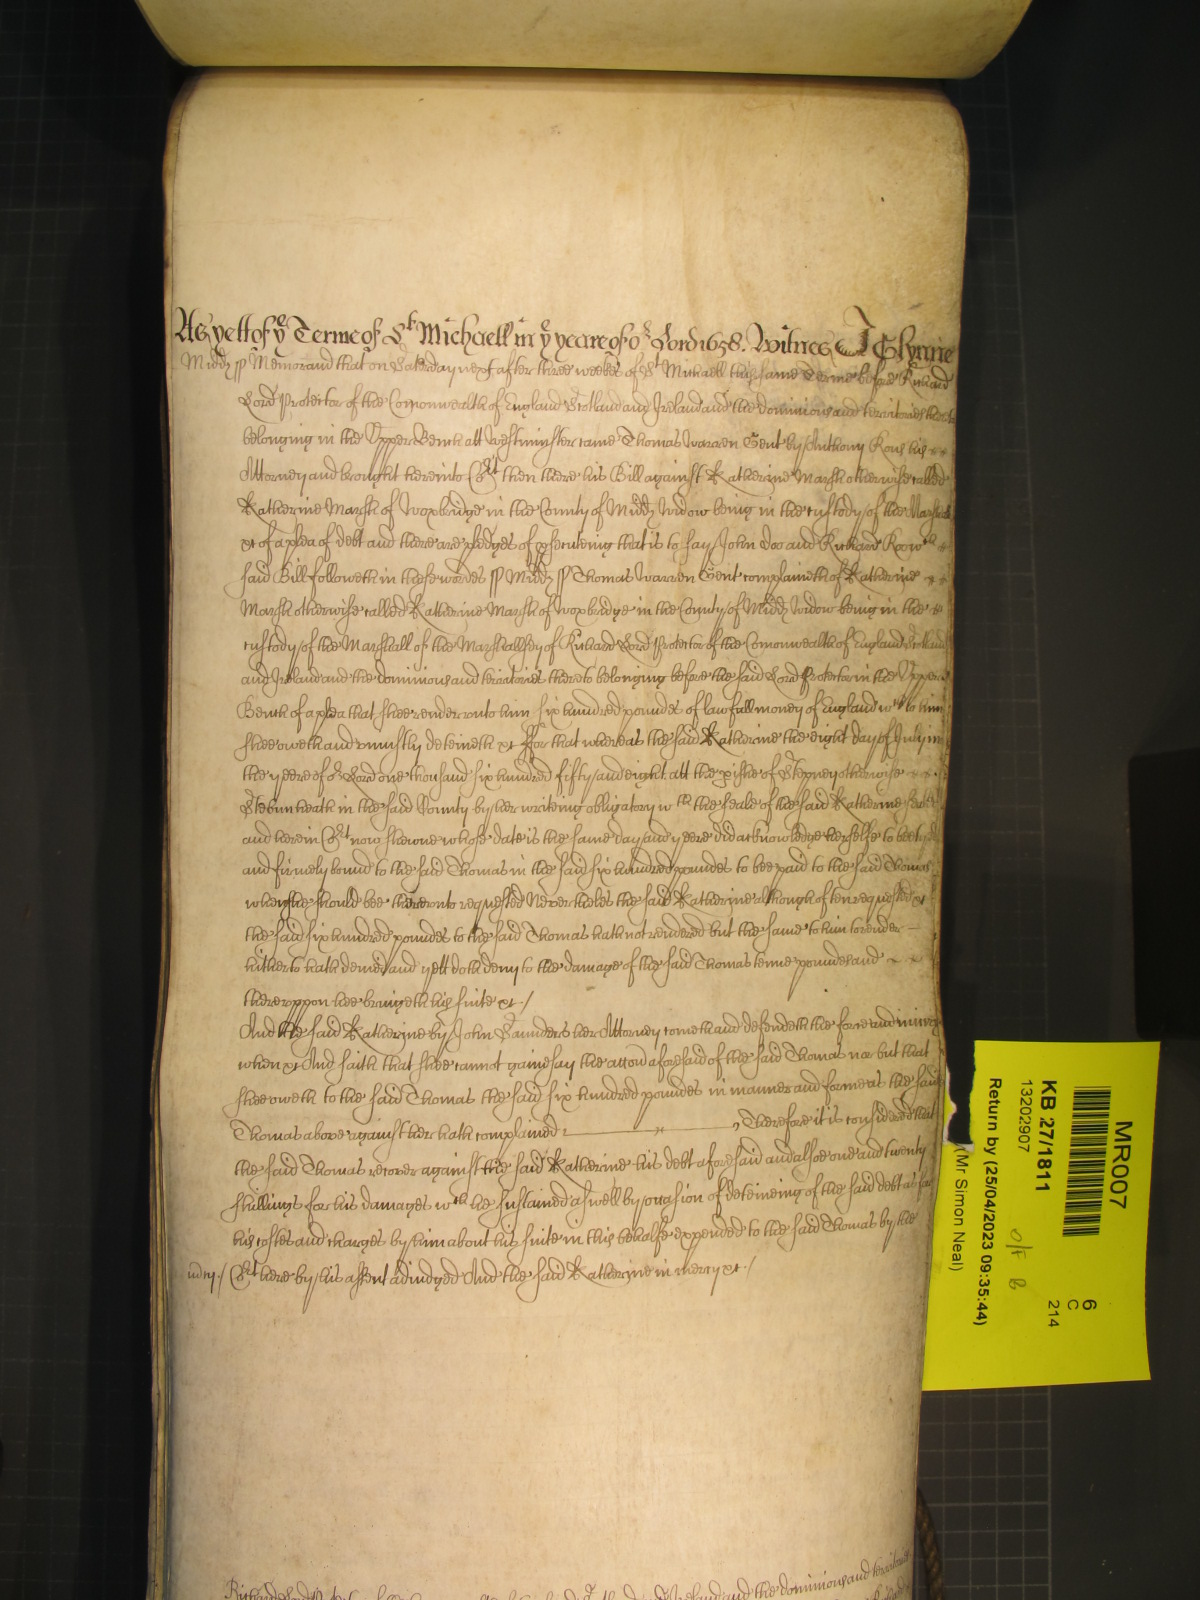 As yett of ye Terme of St Michaell in ye yeare of or Lord 1658. Witnes J Glynne
Middx ss Memorand that on Saterday next after three weekes of St Michaell this same Terme before Richard
Lord Protector of the Comonwealth of England Scotland and Ireland and the dominions and territories thereto
belonging in the Upper Bench att Westminster came Thomas Warren Gent by Anthony Rous his
Attorney and brought here into Cort then there his Bill against Katherine Marsh otherwise called
Katherine Marsh of Woxbridge in the County of Middx widow being in the custody of the Marshall
xt of a plea of debt and there are pledges of psecuteing that is to say John Doo and Richard Roo wch
said Bill followeth in these wordes ss Middx ss Thomas Warren Gent complaineth of Katherine
Marsh otherwise called Katherine Marsh of Woxbridge in the County of Middx widow being in the
custody of the Marshall of the Marshallsey of Richard Lord Protector of the Comonwealth of England Scotland
and Ireland and the dominions and territories thereto belonging before the said Lord Protector in the Upper
Bench of a plea that shee render unto him six hundred poundes of lawfull money of England wch to him
shee oweth and uniustly deteineth xt For that whereas the said Katherine the eight day of July in
the yeere of or Lord one thousand six hundred fifty and eight att the pishe of Stepney otherwise
Stebunheath in the said County by her writeing obligatory wth the seale of the said Katherine sealed
and herein Cort now shewne whose date is the same day and yeere did acknowledge herselfe to bee
and firmely bound to the said Thomas in the said six hundred poundes to bee paid to the said Thomas
when shee should bee thereunto requested Neverthelesse the said Katherine although often requested xt
the said six hundred poundes to the said Thomas hath not rendered but the same to him to render
hitherto hath denied and yett doth deny to the damage of the said Thomas tenne poundes and
thereuppon hee bringeth his suite xt./
And the said Katherine by John Saunders her Attorney cometh and defendeth the force and iniury
when xt And saith that shee cannot gainesay the accon aforesaid of the said Thomas nor but that
shee oweth to the said Thomas the said six hundred poundes in manner and forme as the said
Thomas above against herr hath complained Therefore it is considered that
the said Thomas recover against the said Katherine his debt aforesaid and alsoe one and twenty
shillings for his damages wch he sustained aswell by occasion of deteineing of the said debt as for
his costes and charges by him about his suite in this behalfe expended to the said Thomas by the
Cort here by his assent adiudged And the said Katherine in mercy xt./
MR007
KB 27/1811
13202907
Return by (25/04/2023 09:35:44)
(Mr Simon Neal)
6
C
214
o/f